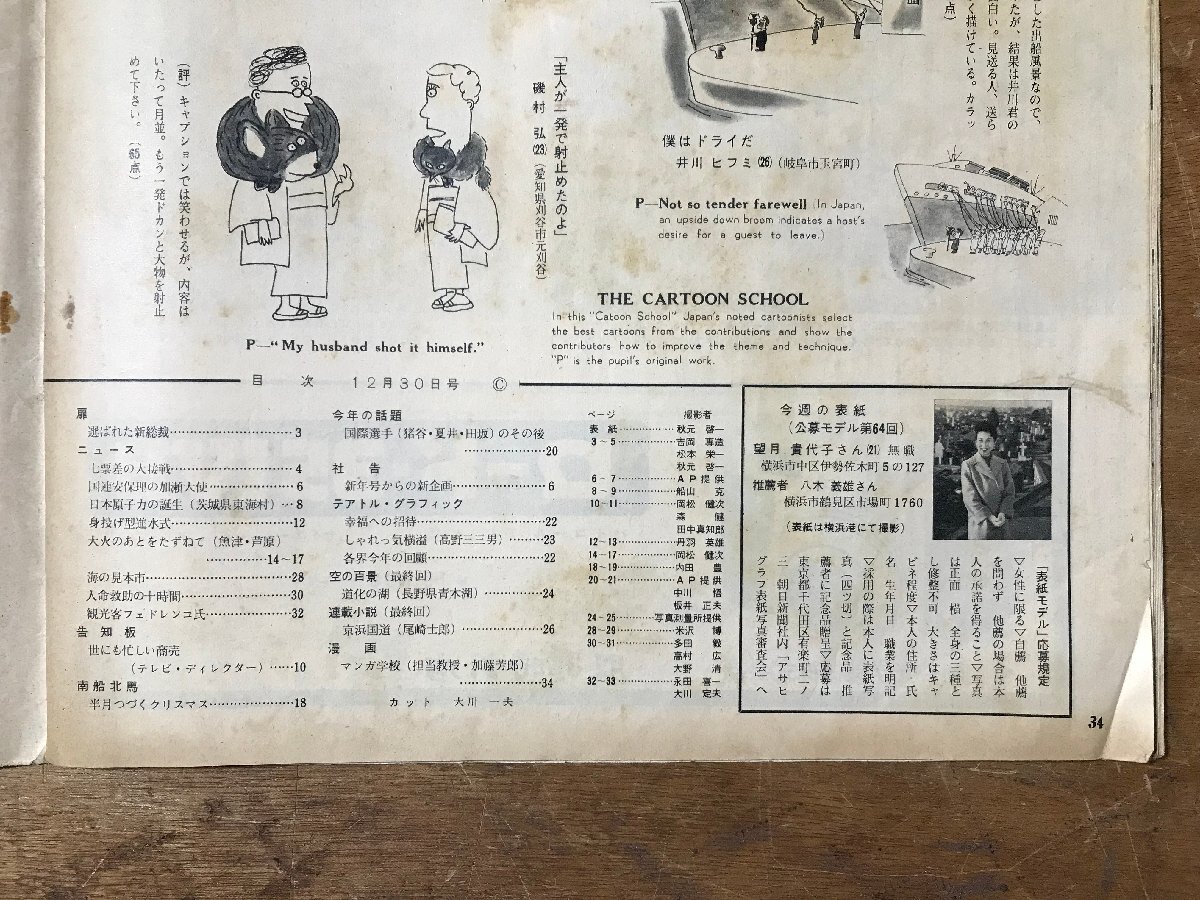 した出船風景なので、
たが、結果は井川君の
白い。見送る人、送ら
く描けている。カラッ
点）
僕はドライだ
井川 ヒフミ(26)（岐阜市玉宮町）
P—Not so tender farewell (In Japan,
an upside down broom indicates a host's
desire for a guest to leave.)
「主人が一発で射止めたのよ」
磯村 弘(23)（愛知県刈谷市元刈谷）
（評）キャプションでは笑わせるが、内容は
いたって月並。もう一発ドカンと大物を射止
めて下さい。（65点）
P—“My husband shot it himself.”
THE CARTOON SCHOOL
In this "Catoon School" Japan's noted cartoonists select
the best cartoons from the contributions and show the
contributors how to improve the theme and technique.
"P" is the pupil's original work.
目 次 12月30日号 ©
扉
選ばれた新総裁 3
ニュース
七票差の大接戦 4
国連安保理の加瀬大使 6
日本原子力の誕生（茨城県東海村） 8
身投げ型進水式 12
大火のあとをたずねて（魚津・芦原）
14〜17
海の見本市 28
人命救助の十時間 30
観光客フェドレンコ氏 32
告知板
世にも忙しい商売
（テレビ・ディレクター） 10
南船北馬
半月つづくクリスマス 18
今年の話題
国際選手（猪谷・夏井・田坂）のその後
20
社告
新年号からの新企画 6
テアトル・グラフィック
幸福への招待 22
しゃれっ気横溢（高野三三男） 23
各界今年の回顧 22
空の百景（最終回）
道化の湖（長野県青木湖） 24
連載小説（最終回）
京浜国道（尾崎士郎） 26
漫画
マンガ学校（担当教授・加藤芳郎）
34
カット 大川 一夫
ページ 撮影者
表紙 秋元 啓一
3〜5 吉岡 専造
松本 栄一
秋元 啓一
6〜7 AP提供
8〜9 船山 克
10〜11 岡松 健次
森 健
田中真知郎
12〜13 丹羽 英雄
14〜17 岡松 健次
18〜19 内田 豊
20〜21 AP提供
中川 悟
坂井 正夫
24〜25 写真測量所提供
28〜29 米沢 博
30〜31 多田 毅
高村 広
大野 清
32〜33 永田 喜一
大川 定夫
今週の表紙
（公募モデル第64回）
望月 貴代子さん(21) 無職
横浜市中区伊勢佐木町5の127
推薦者 八木 義雄さん
横浜市鶴見区市場町1760
（表紙は横浜港にて撮影）
「表紙モデル」応募規定
▽女性に限る▽自薦 他薦
を問わず 他薦の場合は本
人の承諾を得ること▽写真
は正面 横 全身の三種と
し修整不可 大きさはキャ
ビネ程度▽本人の住所 氏
名 生年月日 職業を明記
▽採用の際は本人に表紙写
真（四ツ切）と記念品 推
薦者に記念品贈呈▽応募は
東京都千代田区有楽町二ノ
三 朝日新聞社内「アサヒ
グラフ表紙写真審査会」へ
34